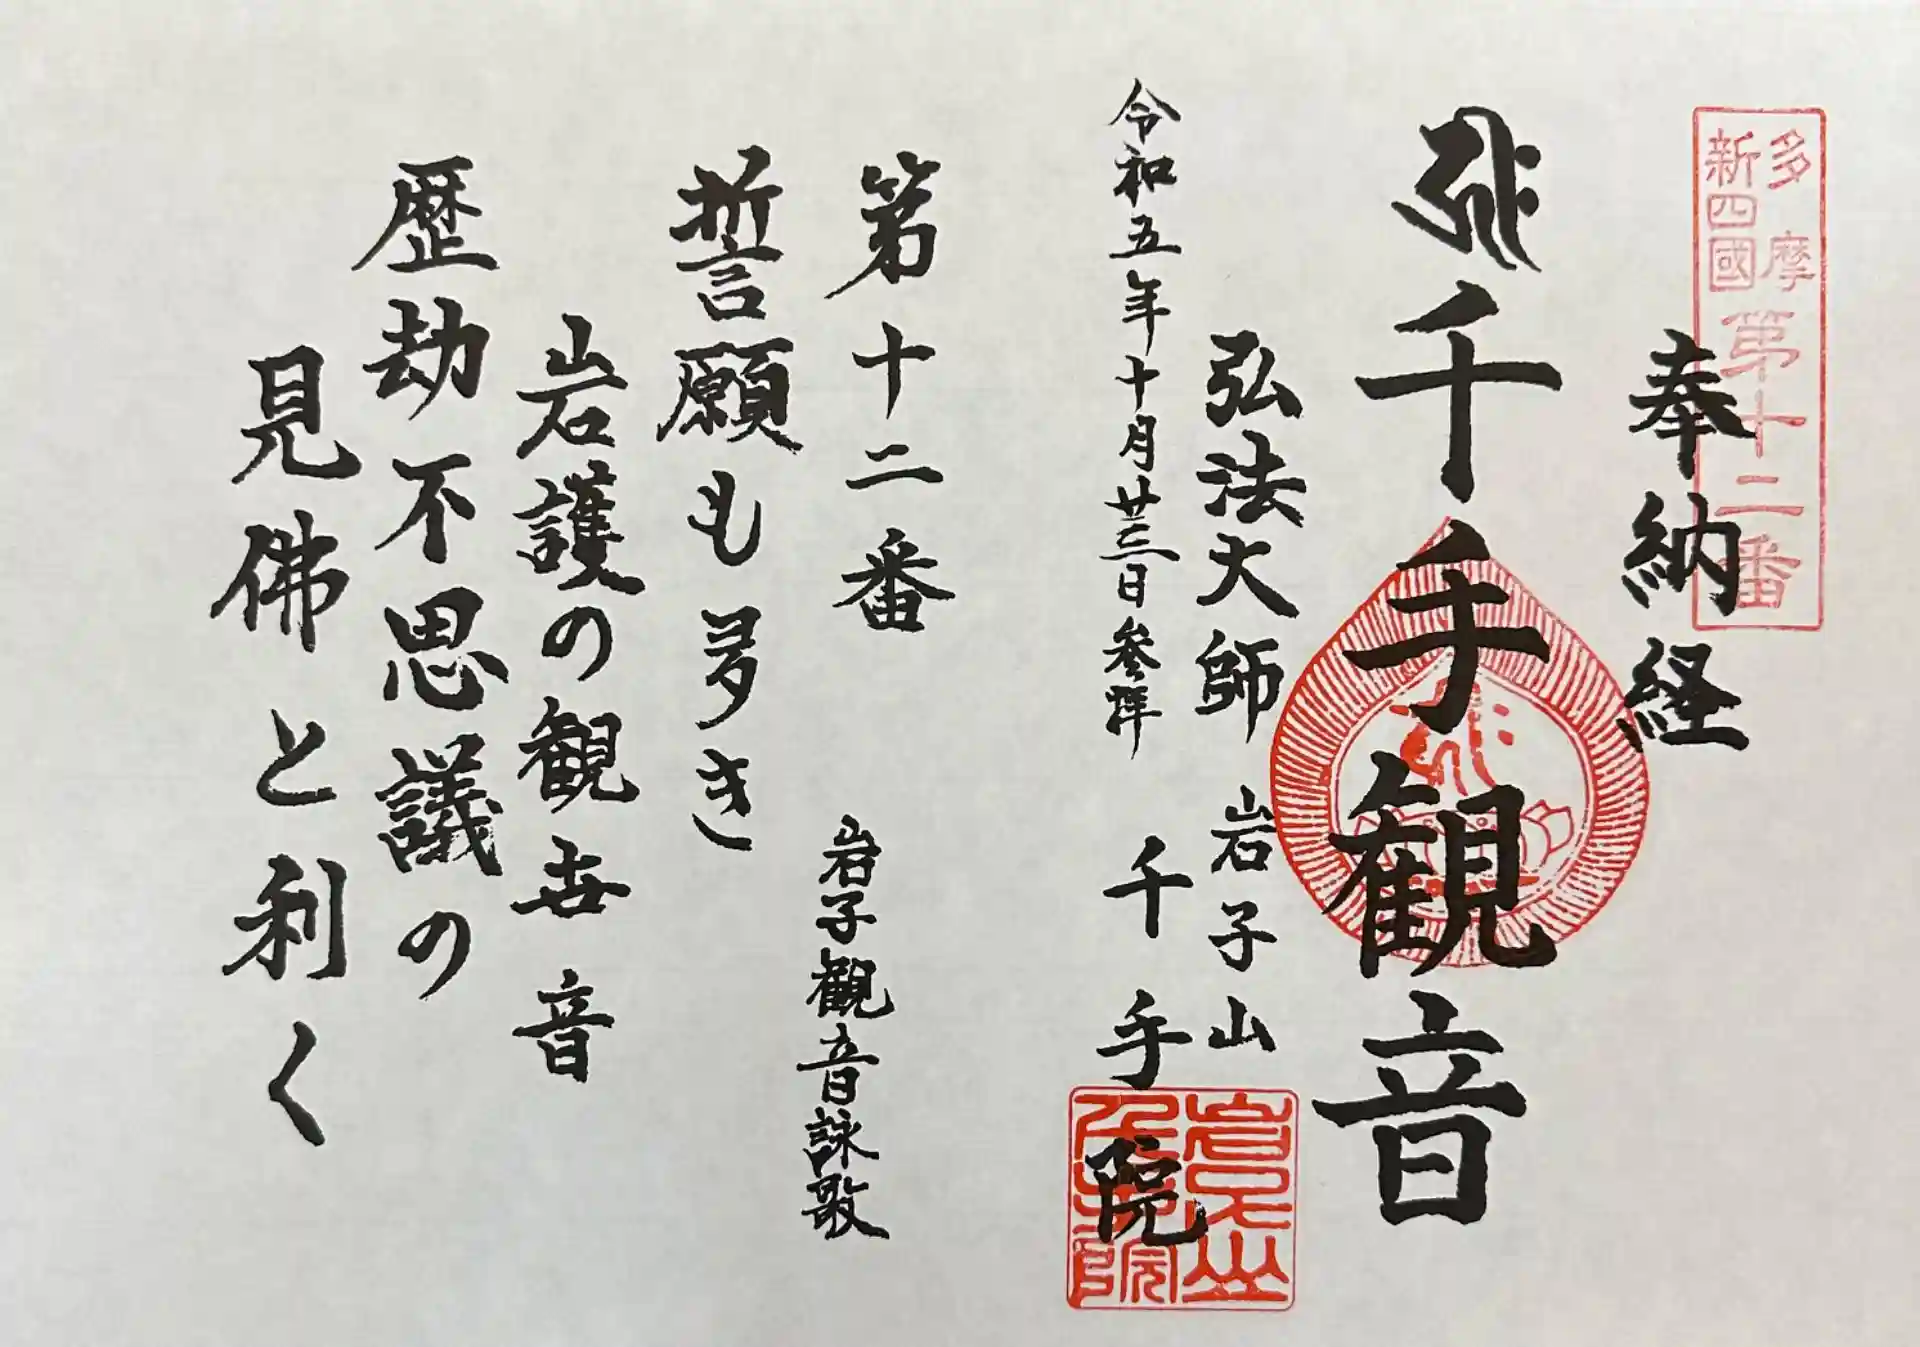 多摩
新四國
第十二番
奉納経
千手観音
弘法大師 岩子山
千手院
令和五年十月廿三日参拝
第十二番 岩子観音詠歌
誓願も多き
岩護の観世音
歴劫不思議の
見佛と利く